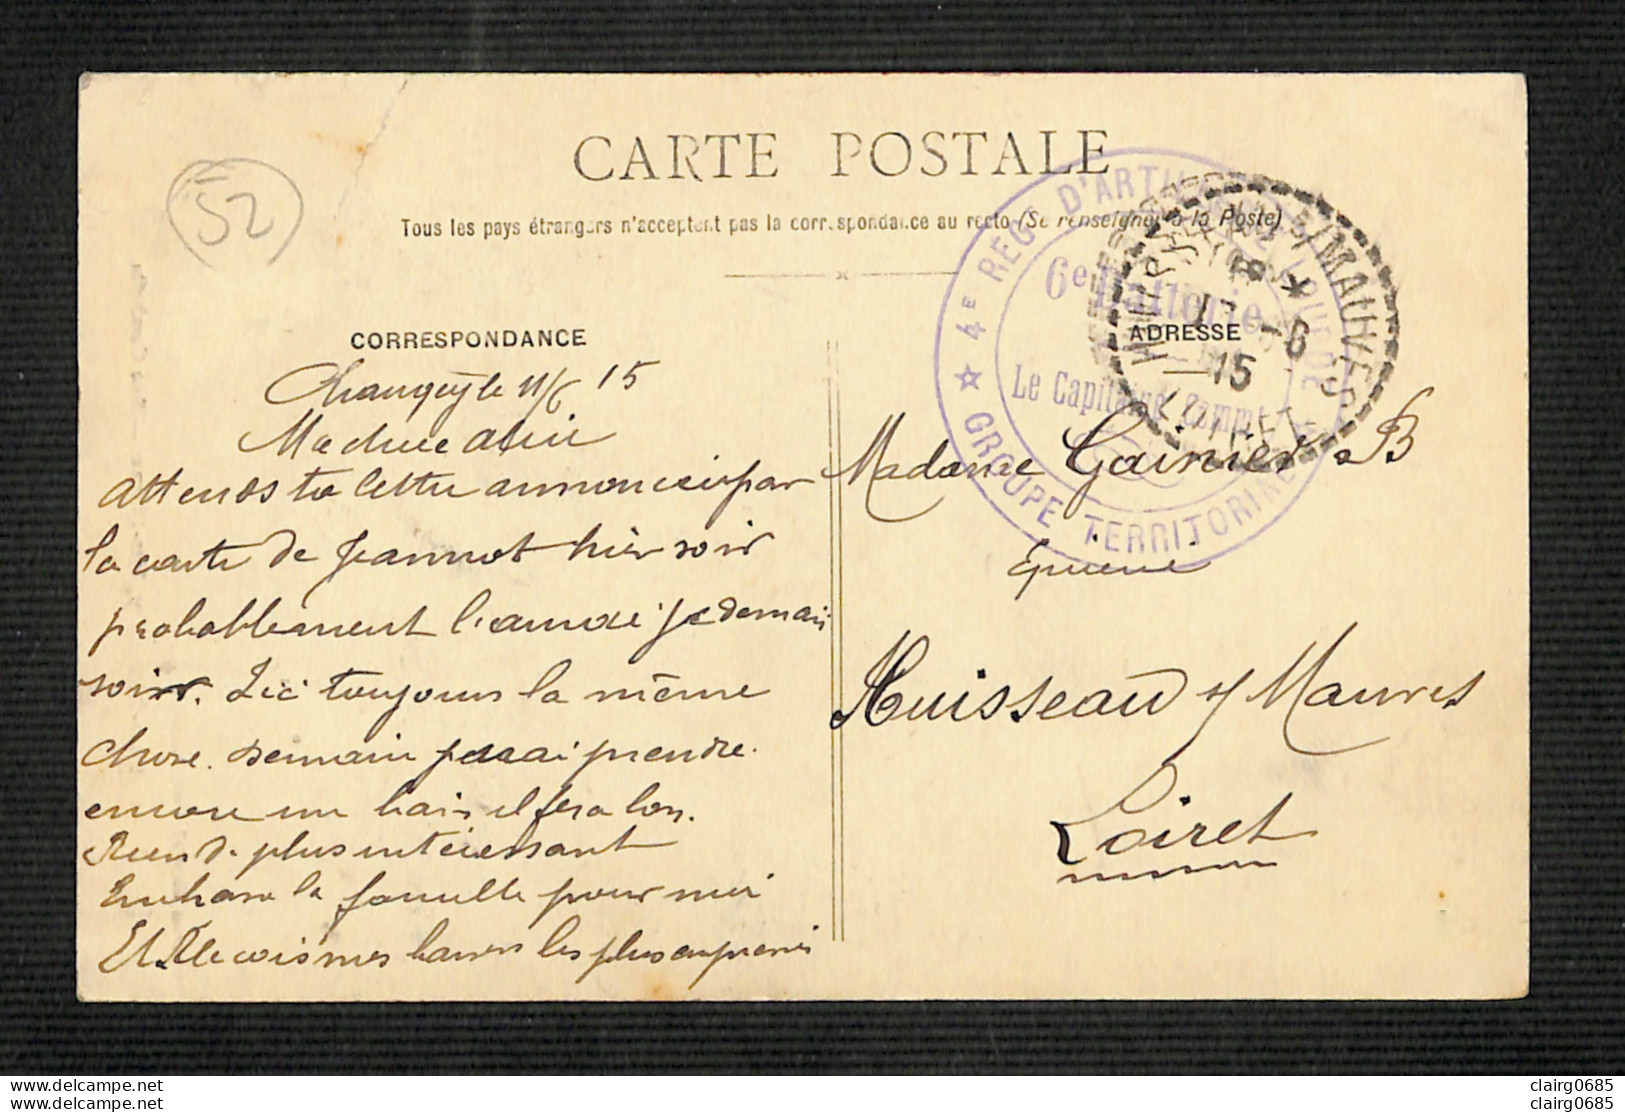 CARTE POSTALE
Tous les pays étrangers n'acceptent pas la correspondance au recto (Se renseigner à la Poste)
52
4E REGT D'ARTILLERIE
GROUPE TERRITORIAL
6e Batterie
Le Capitaine
HUISSEAU S/ MAUVES
LOIRET
-6
15
CORRESPONDANCE
ADRESSE
Changey le 11/6 15
Ma chère
Attends ta lettre annoncée par
la carte de Jeannot hier soir
probablement l'aurai je demain
soir. Ici toujours la même
chose. Demain j'irai prendre
encore un bain il fera bon.
Rien de plus intéressant
Embrasse la famille pour moi
Et reçois mes baisers les plus empressés
Madame Gainier B
Huisseau s/ Mauves
Loiret
clairg0685
clairg0685
clairg0685
clairg0685